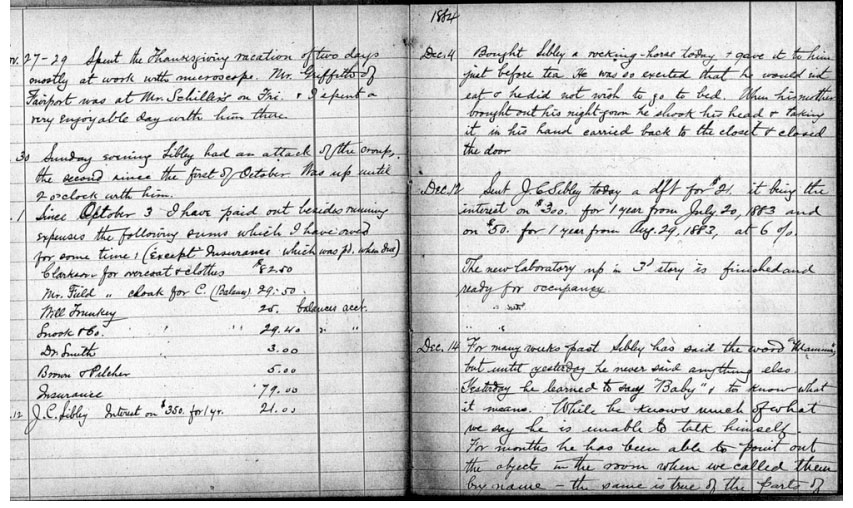 27-29 Spent the Thanksgiving vacation of two days
mostly at work with microscope. Mr. Griffith of
Fairport was at Mr. Schiller's on Fri. & I spent a
very enjoyable day with him there.
30 Sunday evening Sibley had an attack of the croup,
the second since the first of October Was up until
2 o'clock with him.
1 Since October 3 I have paid out besides running
expenses the following sums which I have owed
for some time: (Except Insurance which was pd. when due)
Clarkson for overcoat & clothes $82.50
Mr. Field " cloak for C. (Balance) 29.50
Will Trunkey 25. balances acct.
Snook & Co. " " 29.40 " "
Dr. Smith 3.00
Brown & Pilcher 5.00
Insurance 79.00
12 J.C. Sibley Interest on $350. for 1 yr. 21.00
1884
Dec. 4 Bought Sibley a rocking-horse today & gave it to him
just before tea. He was so excited that he would not
eat & he did not wish to go to bed. When his mother
brought out his night gown he shook his head & taking
it in his hand carried back to the closet & closed
the door
Dec. 12 Sent J.C. Sibley today a dft for $21. it being the
interest on $300. for 1 year from July 20, 1883 and
on $50. for 1 year from Aug. 29, 1883, at 6 %.
The new laboratory up in 3d story is finished and
ready for occupancy.
Dec. 14 For many weeks past Sibley has said the word "Mamma",
but until yesterday he never said anything else.
Yesterday he learned to say "Baby" & to know what
it means. While he knows much of what
we say he is unable to talk himself.
For months he has been able to point out
the objects in the room when we called them
by name - the same is true of the parts of